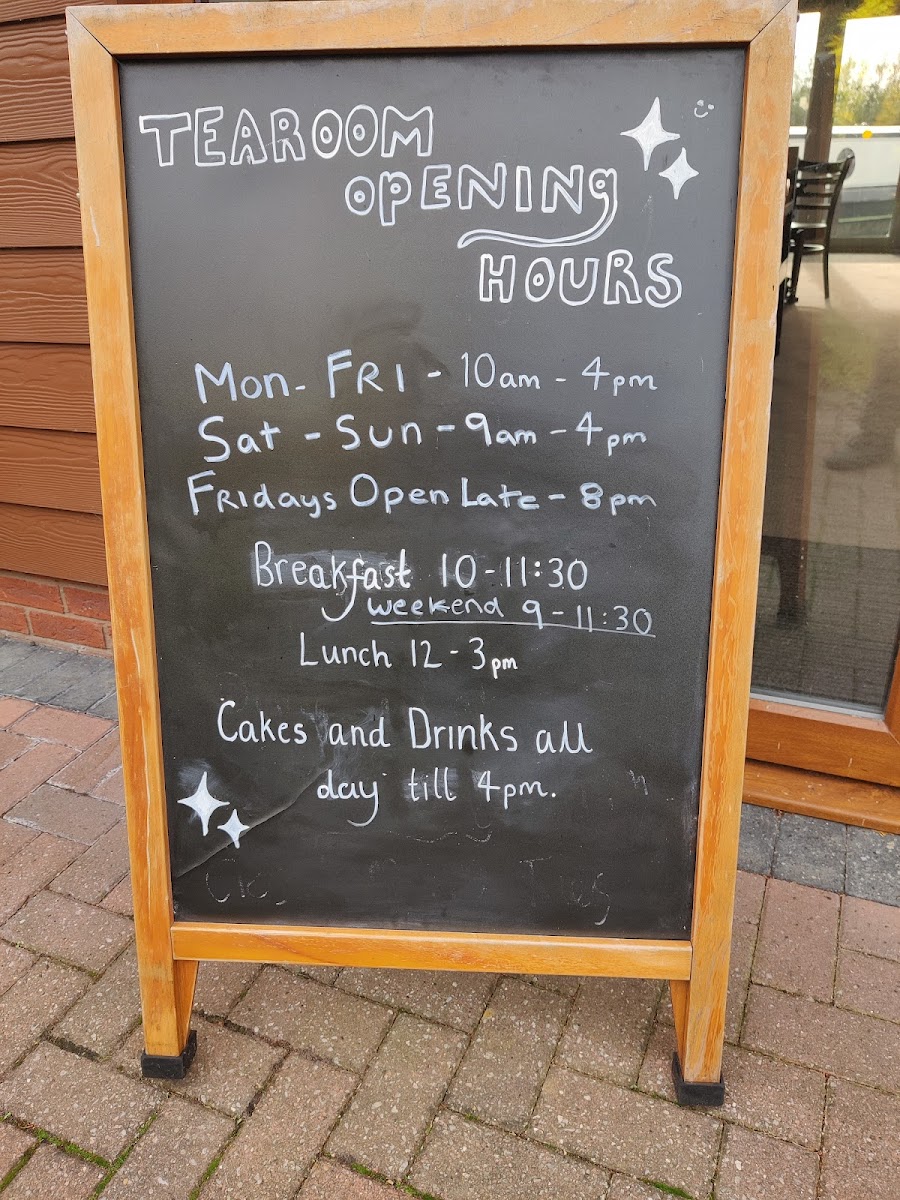 TEAROOM
OPENINg
HOURS
Mon- FRI - 10am - 4pm
Sat - Sun - 9am - 4pm
FRIdays Open Late - 8pm
Breakfast 10-11:30
weekend 9-11:30
Lunch 12-3pm
Cakes and Drinks all
day till 4pm.